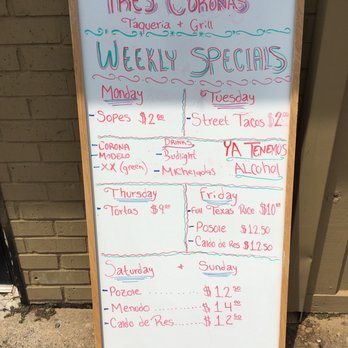 TRES CORONAS
Taqueria + Grill
WEEKLY SPECIALS
Monday
- Sopes $2.00
Tuesday
- Street Tacos $2.00
DRINKS
- CORONA
- MODELO
- XX (green)
- Budlight
- Micheladas
YA TENEMOS
ALCOHOL
Thursday
- Tortas $9.00
Friday
- Fall Texas Rice $10
- Posole $12.50
- Caldo de Res $12.50
Saturday + Sunday
- Pozole ........ $12.50
- Menudo ........ $14.00
- Caldo de Res ..... $12.50